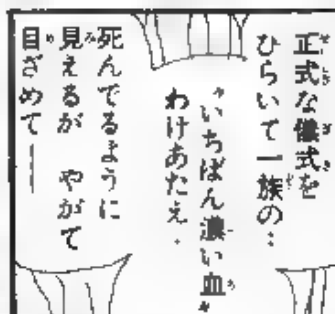 正式な儀式を
ひらいて一族の…
“いちばん濃い血”
わけあたえ．
死んでるように
見えるが　やがて
目ざめて──